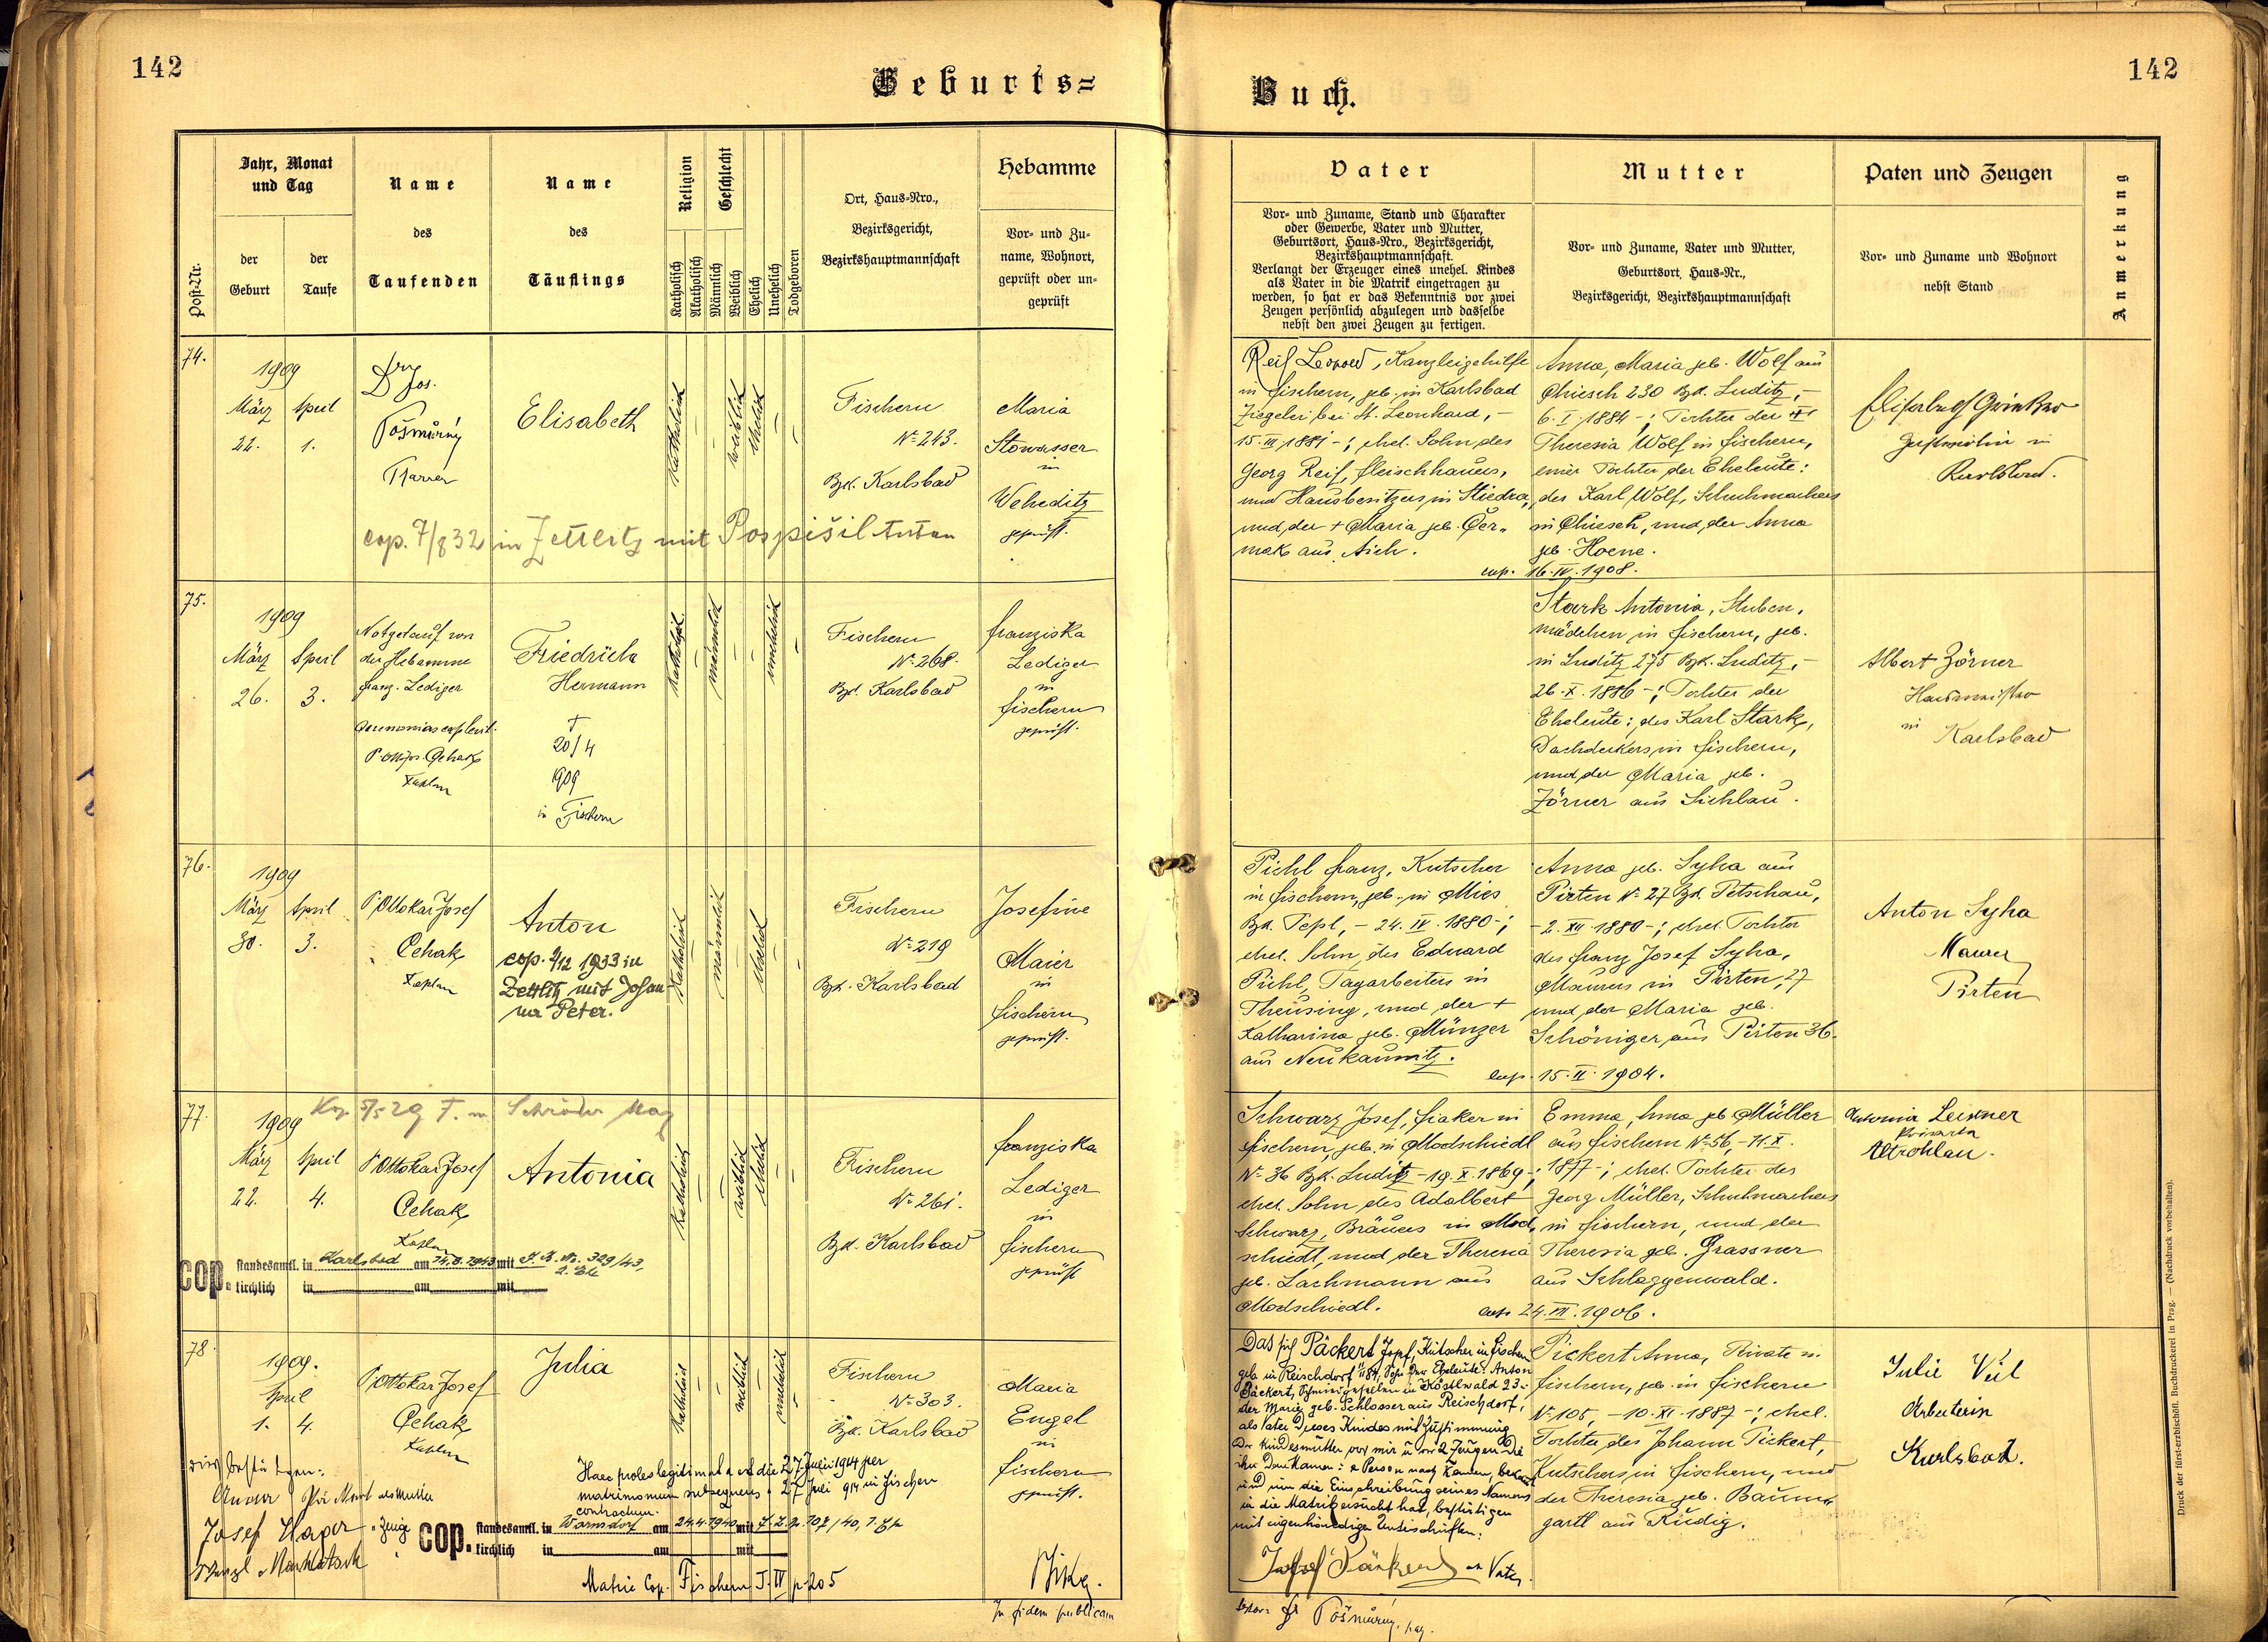 142
142
Geburts=
Buch.
Post-Nr.
Jahr, Monat
und Tag
der
Geburt
der
Taufe
Name
des
Taufenden
Name
des
Täuflings
Religion
Katholisch
Akatholisch
Geschlecht
Männlich
Weiblich
Ehelich
Unehelich
Todgeboren
Ort, Haus-Nro.,
Bezirksgericht,
Bezirkshauptmannschaft
Hebamme
Vor- und Zu-
name, Wohnort,
geprüft oder un-
geprüft
Vater
Vor- und Zuname, Stand und Charakter
oder Gewerbe, Vater und Mutter,
Geburtsort, Haus-Nro., Bezirksgericht,
Bezirkshauptmannschaft.
Verlangt der Erzeuger eines unehel. Kindes
als Vater in die Matrik eingetragen zu
werden, so hat er das Bekenntnis vor zwei
Zeugen persönlich abzulegen und dasselbe
nebst den zwei Zeugen zu fertigen.
Mutter
Vor- und Zuname, Vater und Mutter,
Geburtsort, Haus-Nr.,
Bezirksgericht, Bezirkshauptmannschaft
Paten und Zeugen
Vor- und Zuname und Wohnort
nebst Stand
Anmerkung
74.
1909
März April
22. 1.
Dr. Jos.
Pošmůrný
Pfarrer
Elisabeth
katholisch
weiblich
ehelich
Fischern
No 243.
Bzk. Karlsbad
Maria
Stowasser
in
Weheditz
geprüft.
cop. 7/8 32 in Zettlitz mit Pospišil Anton
Reif Leopold, Kanzleigehilfe
in Fischern, geb. in Karlsbad
Ziegelei bei St. Leonhard, -
15. III 1881 -; ehel. Sohn des
Georg Reif, Fleischhauers,
und Hausbesitzers in Stiedra,
und der + Maria geb. Čer-
mak aus Aich.
Anna, Maria geb. Wolf aus
Chiesch 230 Bzk. Luditz, -
6. I 1884 -; Tochter der
Theresia Wolf in Fischern,
einer Tochter der Eheleute:
des Karl Wolf, Schuhmachers
in Chiesch, und der Anna
geb. Hoene.
cop. 16. IV. 1908.
in
Karlsbad.
75.
1909
März April
26. 3.
Notgetauft von
der Hebamme
Franz. Lediger
P. Ottok. Jos. Cehak
Kaplan
Friedrich
Hermann
†
20/4
1909
in Fischern
katholisch
männlich
unehelich
Fischern
No 268.
Bzk. Karlsbad
Franziska
Lediger
in
Fischern
geprüft.
Stark Antonia, Stuben-
mädchen in Fischern, geb.
in Luditz 275 Bzk. Luditz, -
26. X. 1886 -; Tochter der
Eheleute: des Karl Stark,
Dachdeckers in Fischern,
und der Maria geb.
Zörner aus Sichlau.
Albert Zörner
Hausmeister
in
Karlsbad
76.
1909
März April
30. 3.
P. Ottokar Josef
Cehak
Kaplan
Anton
cop. 9/12 1933 in
Zettlitz mit Johan-
na Peter.
katholisch
männlich
ehelich
Fischern
No 219
Bzk. Karlsbad
Josefine
Maier
in
Fischern
geprüft.
Pichl Franz, Kutscher
in Fischern, geb. in Mies
Bzk. Tepl, - 24. IV. 1880 -;
ehel. Sohn des Eduard
Pichl, Tagarbeiters in
Theusing, und der +
Katharina geb. Münzer
aus Neukaunitz.
Anna geb. Syha aus
Pirten No 27 Bzk. Petschau,
- 2. XII. 1880 -; ehel. Tochter
des Franz Josef Syha,
Maurers in Pirten, 27
und der Maria geb.
Schöniger aus Pirten 36.
cop. 15. II. 1904.
Anton Syha
Maurer
Pirten
77.
Kop. 5/5 29 F. m. Schröder Max
1909
März April
22. 4.
P. Ottokar Josef
Cehak
Kaplan
Antonia
katholisch
weiblich
ehelich
Fischern
No 261.
Bzk. Karlsbad
Franziska
Lediger
in
Fischern
geprüft
cop. standesamtl. in Karlsbad am 14.8.1943 mit St. B. Nr. 329/43,
2. Ehe
kirchlich in am mit
Schwarz Josef, Fiaker in
Fischern, geb. in Modschiedl
No 36 Bzk. Luditz - 19. X. 1869 -;
ehel. Sohn des Adalbert
Schwarz, Bräuers in Mod-
schiedl, und der Theresia
geb. Lachmann aus
Modschiedl.
Emma, Anna geb. Müller
aus Fischern No 56, - 11. X.
1877 -; ehel. Tochter des
Georg Müller, Schuhmachers
in Fischern, und der
Theresia geb. Grassner
aus Schlaggenwald.
cop. 24. VII. 1906.
Antonia Leixner
Private
Altrohlau.
78.
1909.
April
1. 4.
P. Ottokar Josef
Cehak
Kaplan
Julia
katholisch
weiblich
unehelich
Fischern
No 303.
Bzk. Karlsbad
Maria
Engel
in
Fischern
geprüft.
Dies bestätigen:
als Mutter
Josef als Zeuge
Haec proles legitimata est die 27 Julii 1914 per
matrimonium subsequens 27 Juli 914 in Fischern
contractum.
cop. standesamtl. in Warnsdorf am 24.4.1940 mit
kirchlich in am mit
Matric Cop. Fischern T. IV p. 205
In fidem publicam
Dass sich Päckert Josef, Kutscher in Fischern
geb. in Reischdorf 1884, Sohn der Eheleute: Anton
Päckert, Schmiedgesellen in Köstlwald 23 u.
der Maria geb. Schlosser aus Reischdorf,
als Vater dieses Kindes mit Zustimmung
der Kindesmutter vor mir u. vor 2 Zeugen die
ihn dem Namen u. Person nach kannten, bekannt
und um die Einschreibung seines Namens
in die Matrik ersucht hat, bestätigen
mit eigenhändigen Unterschriften:
Josef Päckert als Vater
Pickert Anna, Private in
Fischern, geb. in Fischern
No 105, - 10. XI. 1887 -; ehel.
Tochter des Johann Pickert,
Kutschers in Fischern, und
der Theresia geb. Baum-
gartl aus Rudig.
Julie Veit
Arbeiterin
Karlsbad.
Pošmůrný
Druck der fürst-erzbischöfl. Buchdruckerei in Prag. — (Nachdruck vorbehalten).